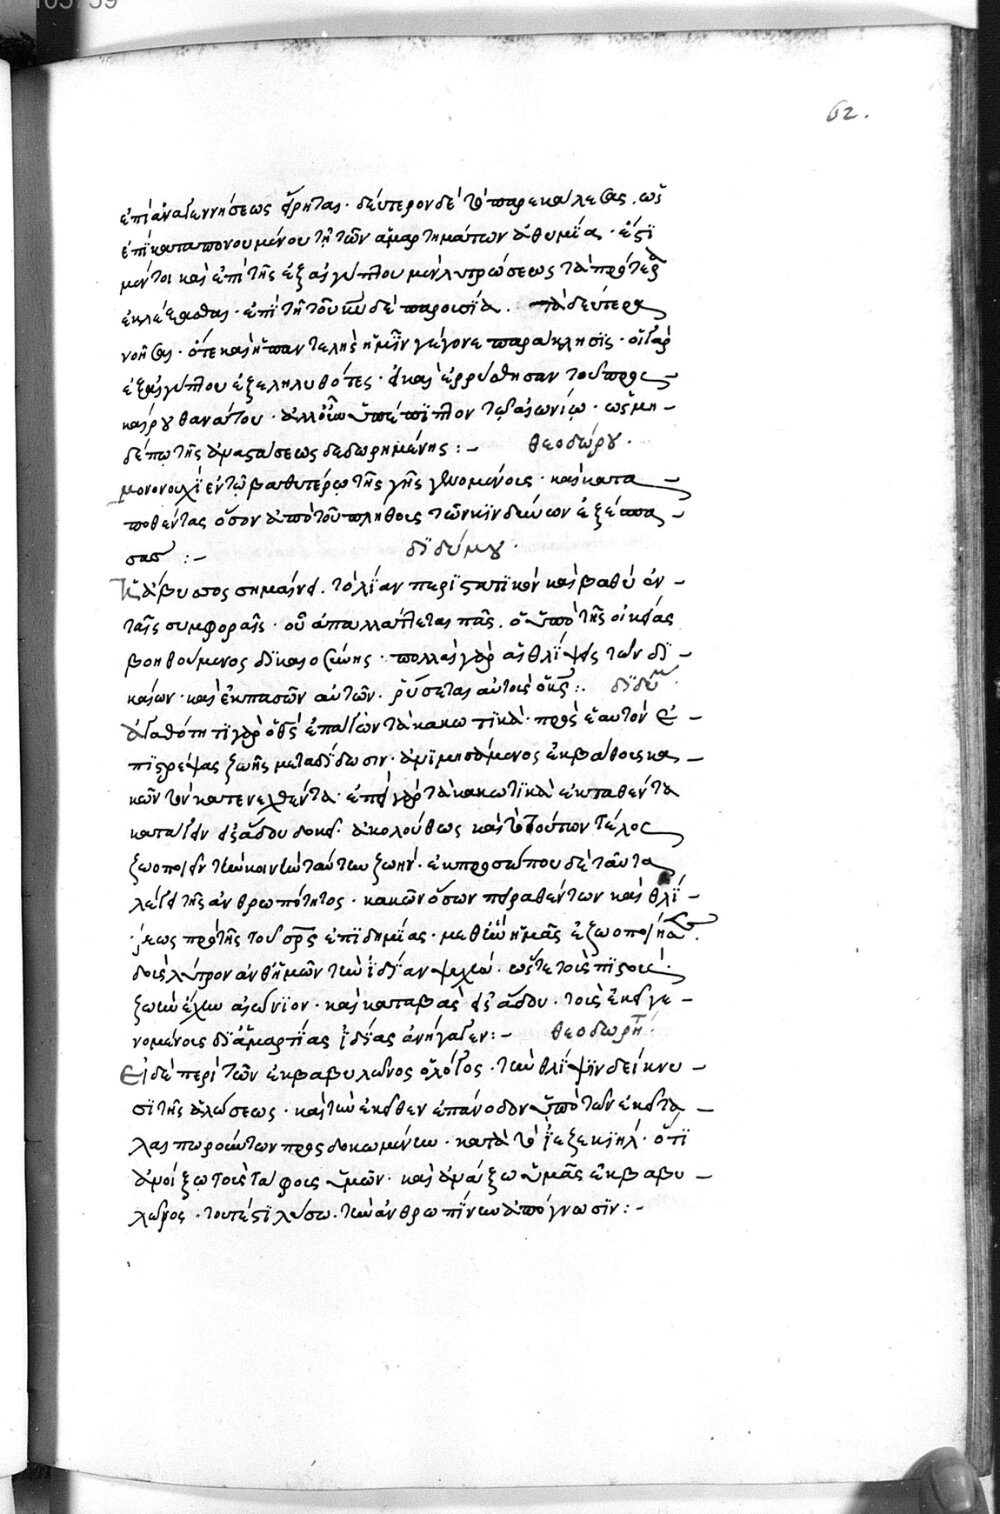 62.
ἐπὶ ἀναγεννήσεως εἴρηται · δεύτερον δὲ τὸ παρεκάλεσας, ὡς
ἐπὶ καταπονουμένου τῇ τῶν ἁμαρτημάτων ἀθυμίᾳ · ἔστι
μέντοι καὶ ἐπὶ τῆς ἐξ αἰγύπτου μὲν λυτρώσεως τὰ πρότερα
ἐκλέξασθαι · ἐπὶ τῇ τοῦ κυ δὲ παρουσίᾳ. τὰ δεύτερα
νοῆσαι · ὅτε καὶ ἡ παντελὴς ἡμῖν γέγονε παράκλησις · οἱ γὰρ
ἐξ αἰγύπτου ἐξεληλυθότες · εἰ καὶ ἐρρύσθησαν τοῦ προς
καίρου θανάτου · ἀλλ' οὖν ὑπέπιπτον τῷ αἰωνίῳ · ὡς μη
δέπω τῆς ἀναστάσεως δεδωρημένης :- θεοδώρου ·
μονονουχὶ ἐν τῷ βαθυτέρῳ τῆς γῆς γενομένους · καὶ κατα
ποθέντας ὅσον ἀπὸ τοῦ πλήθους τῶν κινδύνων ἐξέσπα
σας :- διδύμου ·
Καὶ ἄβυσσος σημαίνει. τὸ λίαν περιστατικὸν καὶ βαθὺ ἐν
ταῖς συμφοραῖς · οὗ ἀπαλλάττεται πᾶς. ὁ ὑπὸ τῆς οἰκείας
βοηθούμενος δικαιοσύνης · πολλαὶ γὰρ αἱ θλίψεις τῶν δι
καίων · καὶ ἐκ πασῶν αὐτῶν · ῥύσεται αὐτοὺς ὁ κς :. διδύμ ·
ἀγαθότητι γὰρ ὁ θς ἐπαγαγὼν τὰ κακωτικὰ · πρὸς ἑαυτὸν ἐ
πιστρέψας ζωῆς μεταδίδωσιν · ἀνιμησάμενος ἐκ βάθους κα
κῶν τὸν κατενεχθέντα · ἐπεὶ γὰρ τὰ κακωτικὰ ἐκταθέντα
κατάγειν εἰς ἅδου δοκεῖ · ἀκολούθως καὶ τὸ τούτων τέλος
ζωοποιεῖν τὴν κοινὴν ταύτην ζωὴν · ἐκ προσώπου δὲ ταῦτα
λέγει τῆς ἀνθρωπότητος · κακῶν ὅσων πειραθέντων καὶ θλί
ψεως πρὸ τῆς τοῦ σρς ἐπιδημίας · μεθ' ἣν ἡμᾶς ἐζωοποίησε
δοὺς λύτρον ἀνθ' ἡμῶν τὴν ἰδίαν ψυχὴν · ὥστε τοὺς πιστοὺς
ζωὴν ἔχειν αἰώνιον · καὶ καταβὰς εἰς ἅδου · τοὺς ἐκεῖ γε
νομένους δι' ἁμαρτίας ἰδίας ἀνήγαγεν :- θεοδωρήτ ·
Εἰ δὲ περὶ τῶν ἐκ βαβυλῶνος ὁ λόγος · τὴν θλίψιν δείκνυ
σι τῆς ἁλώσεως · καὶ τὴν ἐκεῖθεν ἐπάνοδον ὑπὸ τῶν ἐκεῖ τα
λαιπωρούντων προσδοκωμένην · κατὰ τὸ ἰεζεκιὴλ · ὅτι
ἀνοίξω τοὺς τάφους ὑμῶν · καὶ ἀνάξω ὑμᾶς ἐκ βαβυ
λῶνος · τουτέστι λύσω · τὴν ἀνθρωπίνην ἀπόγνωσιν :-